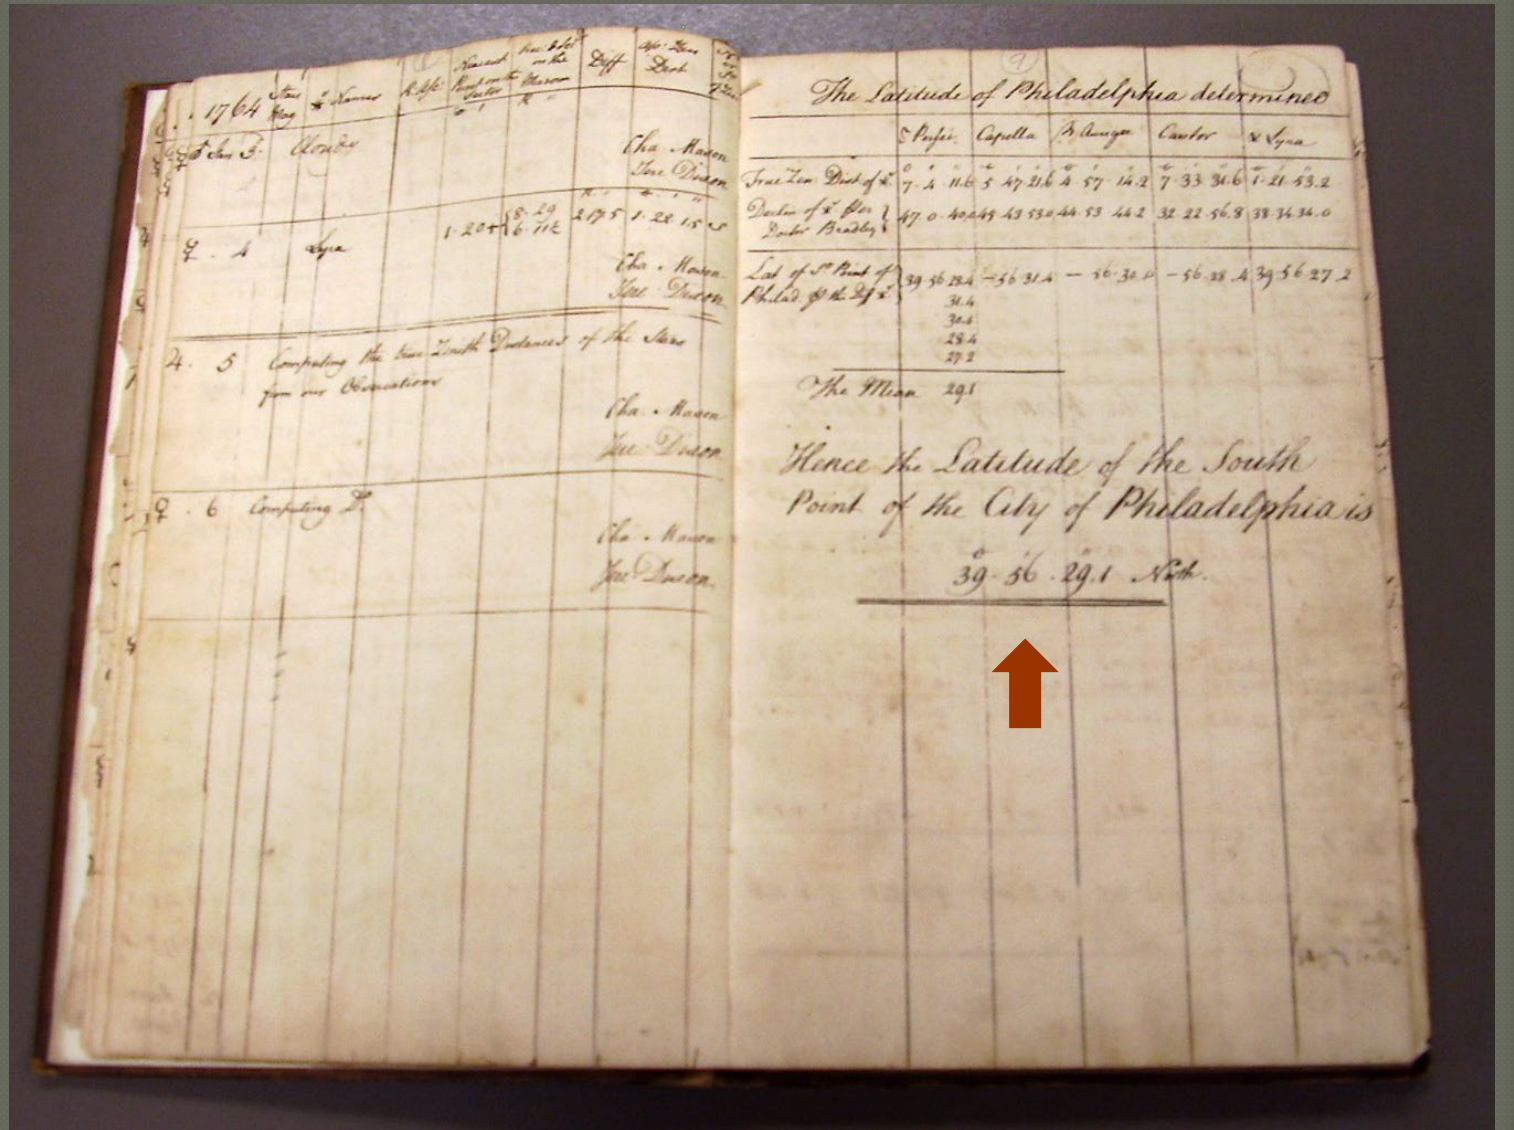 1764 Star's Mag. Names R. Asc. Nearest Point on the Sector on the Microm Diff Dist
Jan 3. Cloudy
Cha. Mason
Jere Dixon
♀ 4 Lyra 1.20+ 8.29 2 17.5 1.22.1.5
6.11½
Cha. Mason
Jere Dixon
♃. 5 Computing the true Zenith Distances of the Stars
from our Observations
Cha. Mason
Jere Dixon
♀. 6 Computing Dº.
Cha. Mason
Jere Dixon
9
The Latitude of Philadelphia determined
Persei. Capella β Aurigæ Castor α Lyra
True Zen: Dist of 7.4.11.6 5 47.21.6 4 57.14.2 7.33.31.6 1.21.53.2
Declin of per 47.0.40.0 45.43 53.0 44.53 44.2 32.22.56.8 38.34.34.0
Doctor Bradley
Lat of Sº Point of 39.56 28.4 – 56 31.4 – 56.30.0 – 56.28.4 39.56.27.2
Philad. the Diff
31.4
30.0
28.4
27.2
The Mean 29.1
Hence the Latitude of the South
Point of the City of Philadelphia is
39.56.29.1 North.